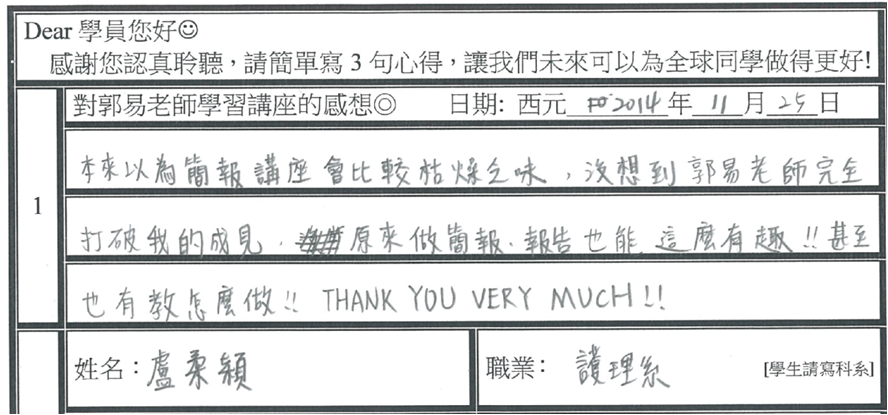 Dear 學員您好☺
感謝您認真聆聽，請簡單寫 3 句心得，讓我們未來可以為全球同學做得更好!
1
對郭易老師學習講座的感想◎ 日期: 西元 2014 年 11 月 25 日
本來以為簡報講座會比較枯燥乏味，沒想到郭易老師完全
打破我的成見，原來做簡報、報告也能這麼有趣!! 甚至
也有教怎麼做!! THANK YOU VERY MUCH!!
姓名：盧柔穎 職業： 護理系 [學生請寫科系]